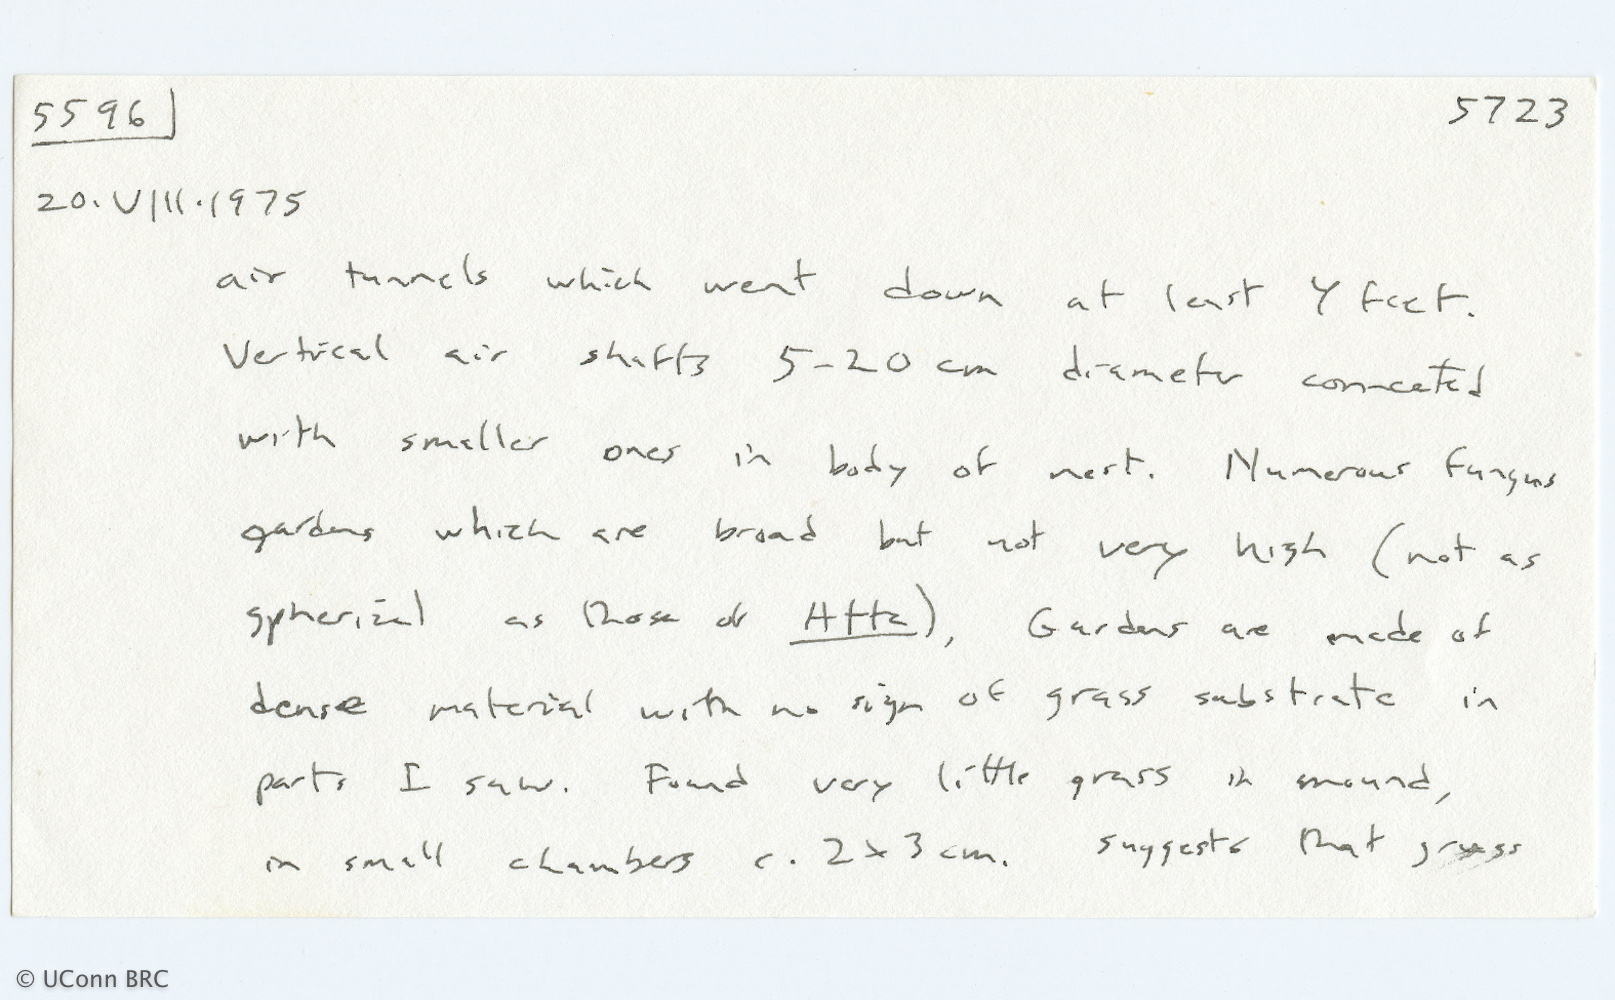 5596
5723
20.VIII.1975
air tunnels which went down at least 4 feet.
Vertical air shafts 5-20 cm diameter connected
with smaller ones in body of nest. Numerous fungus
gardens which are broad but not very high (not as
spherical as those of Atta), Gardens are made of
dense material with no sign of grass substrate in
parts I saw. Found very little grass in mound,
in small chambers c. 2x3 cm. Suggests that grass
© UConn BRC